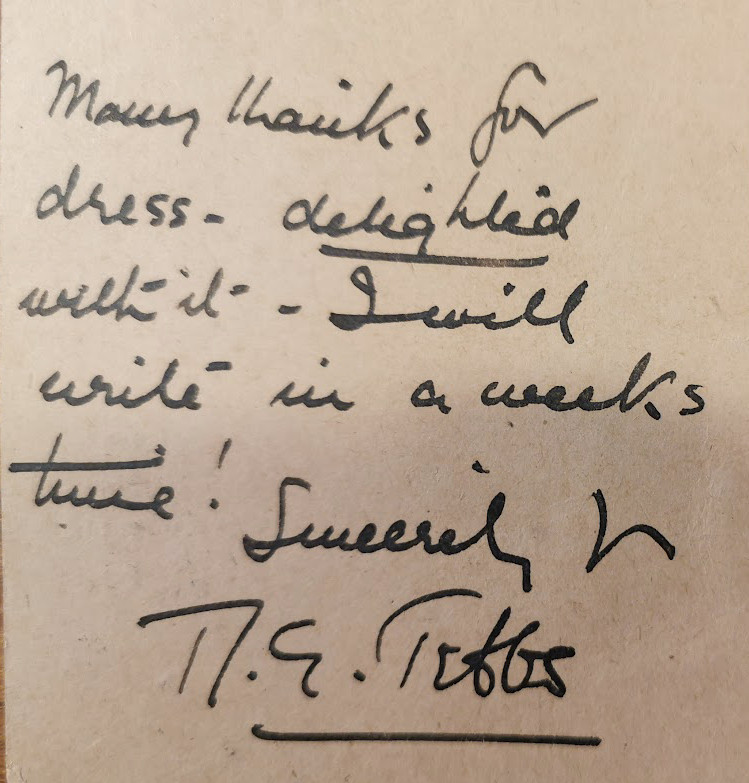 Many thanks for
dress - delighted
with it - I will
write in a weeks
time!
Sincerely Yr
E. Tebbs